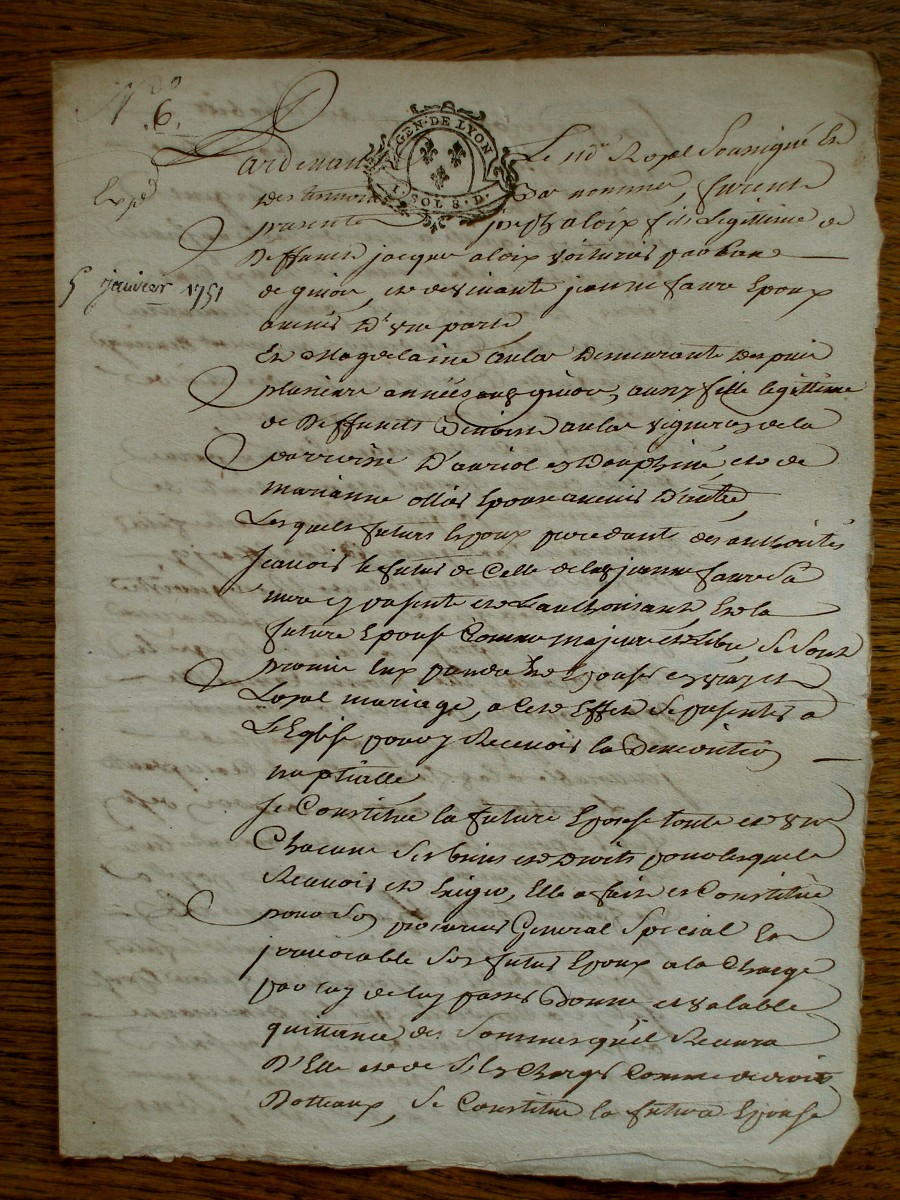 N° 6.
Expé
5 janvier 1751
GEN. DE LYON
SOLS. D.
Pardevant Le no.re Royal Soussigné Et
des temoins Bas nommés, furent
presents aloix fils Legitime de
Deffunct jacques alois voiturier par eau
de givor, et de vivante jeanne faure Epoux
avenir D'une parte
Et Magdelaine aulas Demeurante Depuis
plusieurs années aud givor, aussy fille legittime
de Deffuncts aulas vigneron de la
parroisse D'auriol en Dauphiné et de
marianne ollias Epouse avenir D'autre
Lesquels futurs Epoux procedants des authorités
scavoir le futur de Celle de lad jeanne faure Sa
mere cy presente et L'authorisant Et la
future Epouse Comme majeure et libre, se sont
promis Eux prendre et Epouser en vray et
Loyal mariage, a Cet Effect se presenter a
L'Eglise pour y Recevoir la Benediction
nuptialle
Se Constitue la future Epouse toute et un
Chacuns Ses biens et Droits pour lesquels
Recevoir et Exiger, Elle a fait et Constitué
pour Son procureur General Special Et
jrrevocable Son futur Epoux a la Charge
par luy de luy passer Bonne et valable
quittance des Sommes qu'il Recevra
D'Elle et de Ses Charges Comme de droits
Dotteaux, Se Constitue la future Epouse